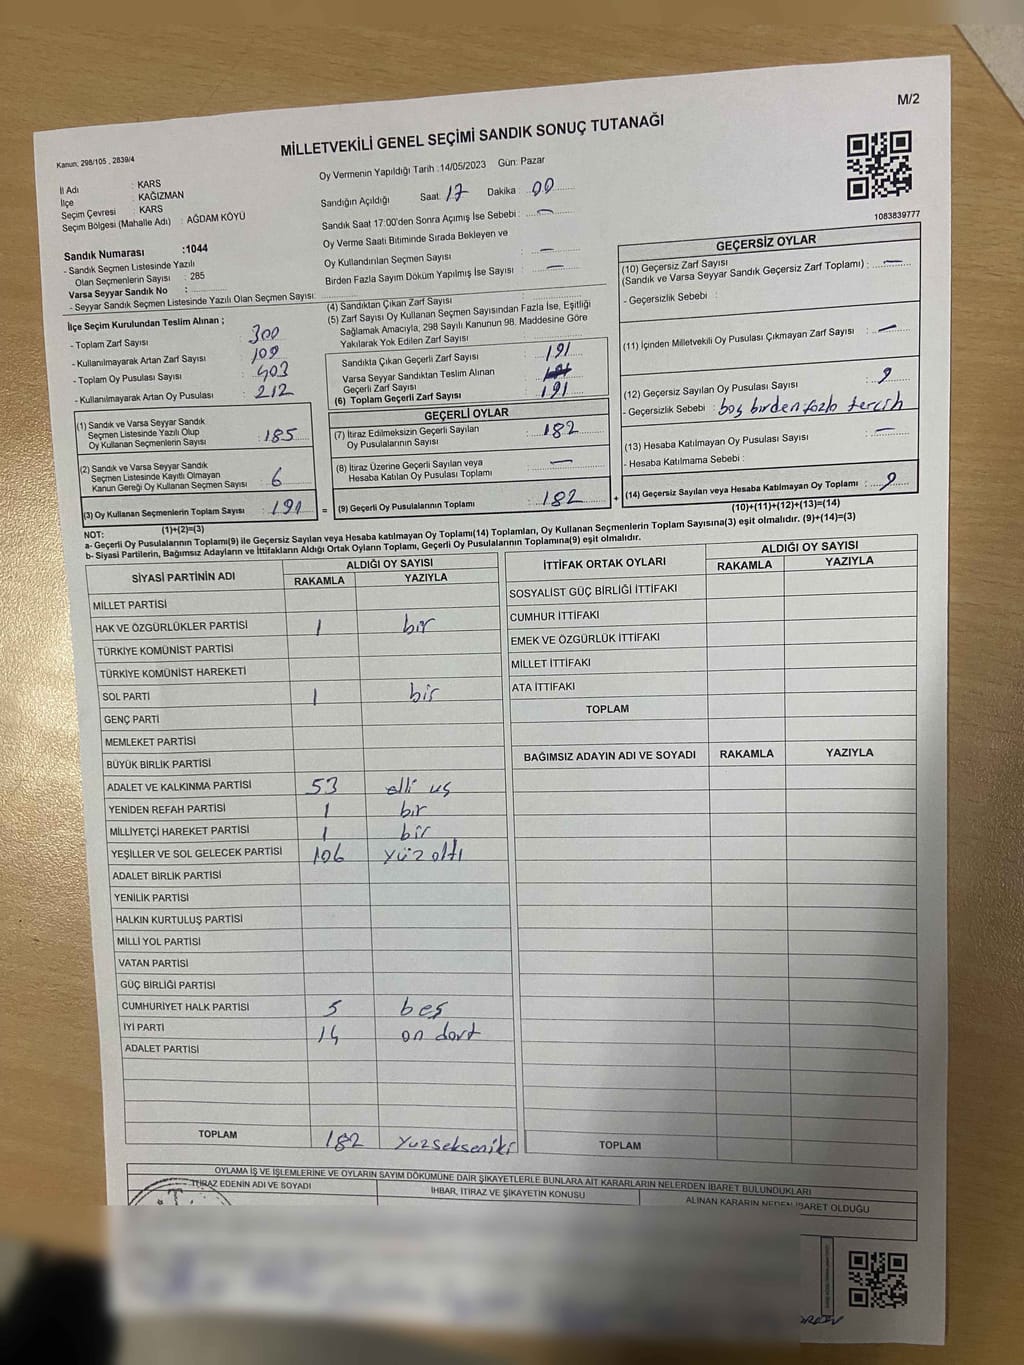 M/2
MİLLETVEKİLİ GENEL SEÇİMİ SANDIK SONUÇ TUTANAĞI
Kanun: 298/105 , 2839/4
İl Adı : KARS
İlçe : KAĞIZMAN
Seçim Çevresi : KARS
Seçim Bölgesi (Mahalle Adı) : AĞDAM KÖYÜ
Sandık Numarası :1044
- Sandık Seçmen Listesinde Yazılı
Olan Seçmenlerin Sayısı : 285
Varsa Seyyar Sandık No :
- Seyyar Sandık Seçmen Listesinde Yazılı Olan Seçmen Sayısı:
Oy Vermenin Yapıldığı Tarih :14/05/2023 Gün: Pazar
Sandığın Açıldığı Saat 17 Dakika : 00
Sandık Saat 17:00'den Sonra Açımış İse Sebebi : —
Oy Verme Saati Bitiminde Sırada Bekleyen ve
Oy Kullandırılan Seçmen Sayısı : —
Birden Fazla Sayım Döküm Yapılmış İse Sayısı : —
1083839777
İlçe Seçim Kurulundan Teslim Alınan ;
- Toplam Zarf Sayısı : 300
- Kullanılmayarak Artan Zarf Sayısı : 109
- Toplam Oy Pusulası Sayısı : 403
- Kullanılmayarak Artan Oy Pusulası : 212
(1) Sandık ve Varsa Seyyar Sandık
Seçmen Listesinde Yazılı Olup
Oy Kullanan Seçmenlerin Sayısı : 185
(2) Sandık ve Varsa Seyyar Sandık
Seçmen Listesinde Kayıtlı Olmayan
Kanun Gereği Oy Kullanan Seçmen Sayısı : 6
(3) Oy Kullanan Seçmenlerin Toplam Sayısı : 191 =
(1)+(2)=(3)
(4) Sandıktan Çıkan Zarf Sayısı
(5) Zarf Sayısı Oy Kullanan Seçmen Sayısından Fazla İse, Eşitliği
Sağlamak Amacıyla, 298 Sayılı Kanunun 98. Maddesine Göre
Yakılarak Yok Edilen Zarf Sayısı :
Sandıkta Çıkan Geçerli Zarf Sayısı : 191
Varsa Seyyar Sandıktan Teslim Alınan
Geçerli Zarf Sayısı :
(6) Toplam Geçerli Zarf Sayısı : 191
GEÇERLİ OYLAR
(7) İtiraz Edilmeksizin Geçerli Sayılan
Oy Pusulalarının Sayısı : 182
(8) İtiraz Üzerine Geçerli Sayılan veya
Hesaba Katılan Oy Pusulası Toplamı : —
(9) Geçerli Oy Pusulalarının Toplamı : 182 +
GEÇERSİZ OYLAR
(10) Geçersiz Zarf Sayısı
(Sandık ve Varsa Seyyar Sandık Geçersiz Zarf Toplamı) : —
- Geçersizlik Sebebi :
(11) İçinden Milletvekili Oy Pusulası Çıkmayan Zarf Sayısı : —
(12) Geçersiz Sayılan Oy Pusulası Sayısı : 9
- Geçersizlik Sebebi : boş birden fazla tercih
(13) Hesaba Katılmayan Oy Pusulası Sayısı : —
- Hesaba Katılmama Sebebi :
(14) Geçersiz Sayılan veya Hesaba Katılmayan Oy Toplamı : 9
(10)+(11)+(12)+(13)=(14)
NOT:
a- Geçerli Oy Pusulalarının Toplamı(9) ile Geçersiz Sayılan veya Hesaba katılmayan Oy Toplamı(14) Toplamları, Oy Kullanan Seçmenlerin Toplam Sayısına(3) eşit olmalıdır. (9)+(14)=(3)
b- Siyasi Partilerin, Bağımsız Adayların ve İttifakların Aldığı Ortak Oyların Toplamı, Geçerli Oy Pusulalarının Toplamına(9) eşit olmalıdır.
SİYASİ PARTİNİN ADI ALDIĞI OY SAYISI
RAKAMLA YAZIYLA
MİLLET PARTİSİ
HAK VE ÖZGÜRLÜKLER PARTİSİ 1 bir
TÜRKİYE KOMÜNİST PARTİSİ
TÜRKİYE KOMÜNİST HAREKETİ
SOL PARTİ 1 bir
GENÇ PARTİ
MEMLEKET PARTİSİ
BÜYÜK BİRLİK PARTİSİ
ADALET VE KALKINMA PARTİSİ 53 elli uş
YENİDEN REFAH PARTİSİ 1 bir
MİLLİYETÇİ HAREKET PARTİSİ 1 bir
YEŞİLLER VE SOL GELECEK PARTİSİ 106 yüz altı
ADALET BİRLİK PARTİSİ
YENİLİK PARTİSİ
HALKIN KURTULUŞ PARTİSİ
MİLLİ YOL PARTİSİ
VATAN PARTİSİ
GÜÇ BİRLİĞİ PARTİSİ
CUMHURİYET HALK PARTİSİ 5 beş
İYİ PARTİ 14 on dort
ADALET PARTİSİ
TOPLAM 182 yuzsekseniki
İTTİFAK ORTAK OYLARI ALDIĞI OY SAYISI
RAKAMLA YAZIYLA
SOSYALİST GÜÇ BİRLİĞİ İTTİFAKI
CUMHUR İTTİFAKI
EMEK VE ÖZGÜRLÜK İTTİFAKI
MİLLET İTTİFAKI
ATA İTTİFAKI
TOPLAM
BAĞIMSIZ ADAYIN ADI VE SOYADI RAKAMLA YAZIYLA
TOPLAM
OYLAMA İŞ VE İŞLEMLERİNE VE OYLARIN SAYIM DÖKÜMÜNE DAİR ŞİKAYETLERLE BUNLARA AİT KARARLARIN NELERDEN İBARET BULUNDUKLARI
İTİRAZ EDENİN ADI VE SOYADI İHBAR, İTİRAZ VE ŞİKAYETİN KONUSU ALINAN KARARIN NEDEN İBARET OLDUĞU